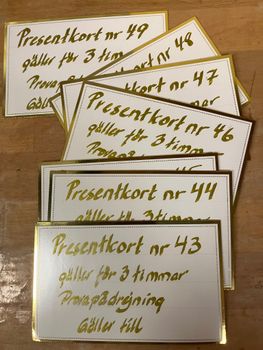 Presentkort nr 49
gäller för 3 tim
Prova
Gäll
Presentkort nr 48
gäller för
Presentkort nr 47
gäller
Presentkort nr 46
gäller för 3 timmar
Provapådrejning
Gäller
Presentkort nr 44
gäller för 3 timmar
Presentkort nr 43
gäller för 3 timmar
Provapådrejning
Gäller till